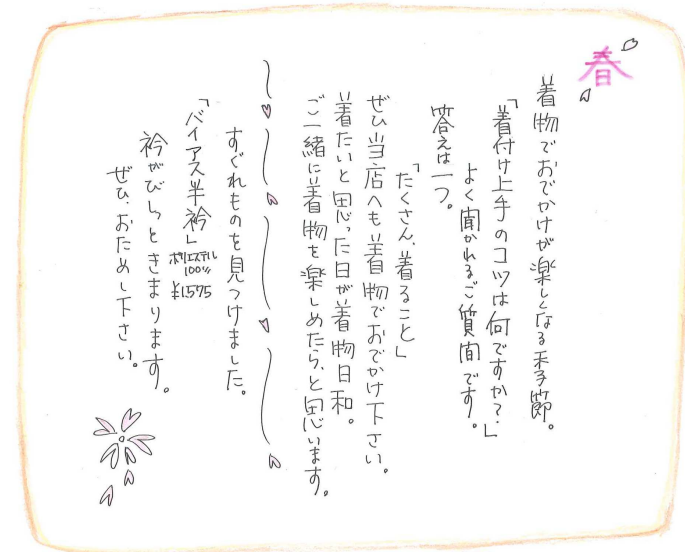 春
着物でおでかけが楽しくなる季節。
「着付け上手のコツは何ですか?」
よく聞かれるご質問です。
答えは一つ。
「たくさん、着ること」
ぜひ当店へも着物でおでかけ下さい。
着たいと思った日が着物日和。
ご一緒に着物を楽しめたら、と思います。
すぐれものを見つけました。
「バイアス半衿」
ポリエステル
100%
¥1,575
衿がぴしっときまります。
ぜひ、おためし下さい。